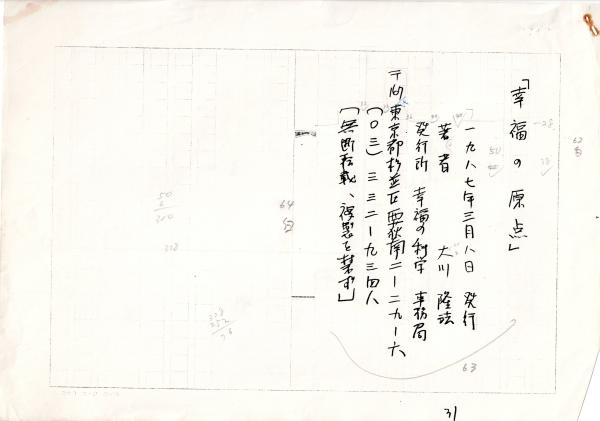 「幸福の原点」
一九八七年三月八日 発行
著者 大川隆法
発行所 幸福の科学 事務局
〒167 東京都杉並区西荻南二-二九-六
(〇三)三三二-九三四八
「無断転載、複製を禁ず」
62
64
63
31
50
208